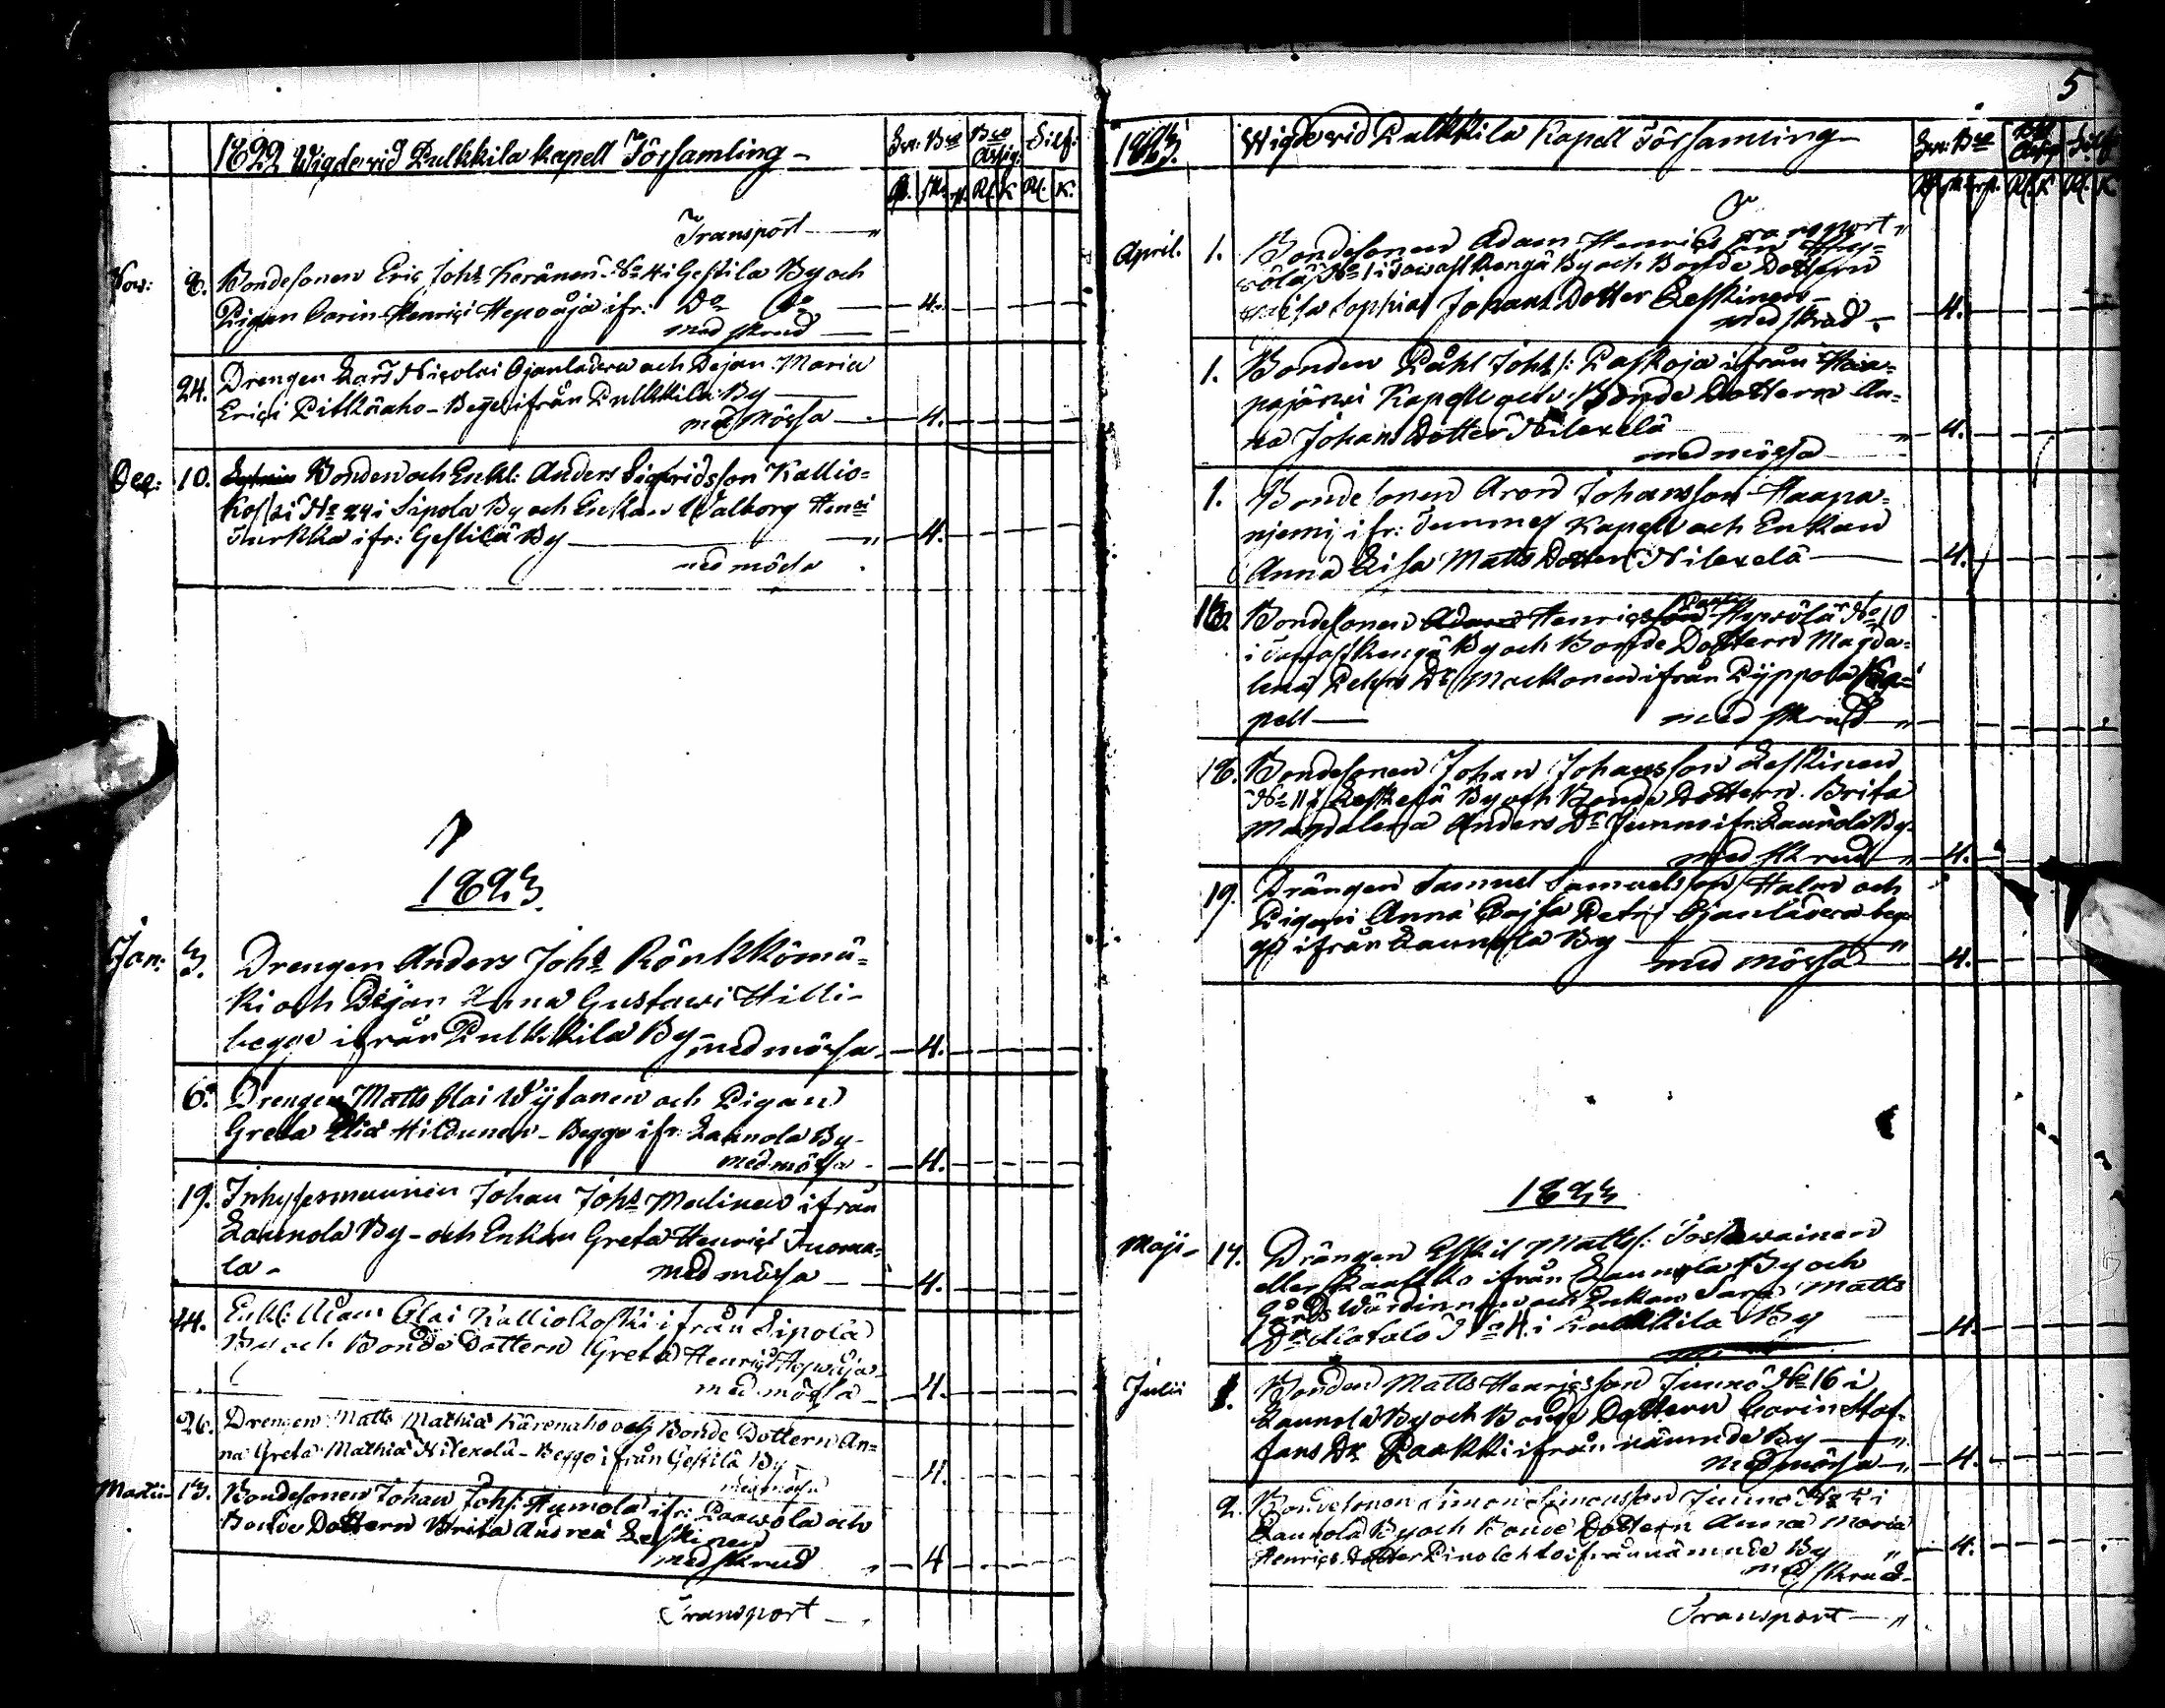 1822 Wigde wid Pulkkila Kapell Församling -
Sv: Bco Bco Assig: Silf:
Rf. sk. rst. Rl. K Rl. K.
Transport - "
Nov: 8. Bondesonen Eric Johs Keränen No 4 i Gestila By och
Pigan Carin Henrici Hepoåja ifr: Do Do - 4.
med skrud
24. Drengen Lars Nicolai Ojanladera och Pejan Maria
Erici Pitkäaho - Begge ifrån Pulkkila By
med Mössa - 4.
Dec: 10. Bonden och Enkl: Anders Sigfridsson Kallio=
koski No 24 i Sipola By och Enkan Walborg Henri
Turkka ifr: Gestilä By - " 4.
med mössa
1823
Jan: 3. Drengen Anders Johs Rönkkömä=
ki och Pigan Anna Gustavi Hilli-
begge ifrån Pulkkila By med mössa - 4.
6. Drengen Matts Olai Wytanen och Pigan
Greta Eliæ Hildunen - Begge ifr: Launola By -
med mössa - 4.
19. Inhysesmannen Johan Johs Malinen ifrån
Launola By - och Enkan Greta Henrici Tuoma=
la - med mössa - 4.
24. Enkl: Olai Kalliokoski ifrån Sipola
By och Bonde Dottern Greta Henrici Hepoåja
med mössa - 4.
26. Drengen Matts Mathiæ Kärenaho och Bonde Dottern An=
na Greta Mathiæ Nilexelä - Begge ifrån Gestilä By -
med mössa 4.
Martii 13. Bondesonen Johan Johs: Humola ifr: Paavola och
Bonde Dottern Brita Andreæ Leskinen
med skrud " 4
Transport - "
5
1823. Wigde wid Pulkkila Kapell Församling -
Sv: Bco Silf:
Transport "
April. 1. Bondesonen Adam Henrics son Hyy=
rölä No 1 i Jawastkengä By och Bonde Dottern
Sophia Johans Dotter Leskinen -
med skrud - 4.
1. Bonden Påhl Johs: Paskoja ifrån Haa=
pajärwi Kapell och Bonde Dottern An=
na Johans Dotter Nilexelä " 4.
med mössa
1. Bondesonen Aron Johansson Haapa=
njemi ifr: Kapell och Enkan
Anna Lisa Matts Dotter Nilexelä - 4.
13. Bondesonen Henric Hyyrölä No 10
i Jawastkengä By och Bonde Dottern Magda=
lena Dr Markonen ifrån Pyppola Ka=
pell - med skrud - "
18. Bondesonen Johan Johansson Leskinen
No 11 Leskelä By och Bonde Dottern Brita
Magdalena Anders Dr Junno ifr: Launola By -
med skrud - " 4.
19. Drängen Samuel Samuelsson Halm och
Pigan Anna Cajsa Petri Ojanladera beg=
ge ifrån Launola By - "
med mössa - 4.
1823
Maji - 14. Drängen Eskil Matts: Toskawainen
eller Raasko ifrån Laurola By och
Gårds Wärdinnan och Enkan Sara Matts
Dr No 4 i Pulkkila By - 4.
Julii 1. Bonden Matts Henricsson Junno No 16 i
Launola By och Bonde Dottern Carin Staf=
fans Dr Raakki ifrån nämnde By - "
med mössa - " 4.
2. Bondesonen Simon Simonsson Junno No 2 i
Launola By och Bonde Dottern Anna Maria
Henrics Dotter Pinolehto ifrån nämnde By " 4.
med skrud -
Transport - "